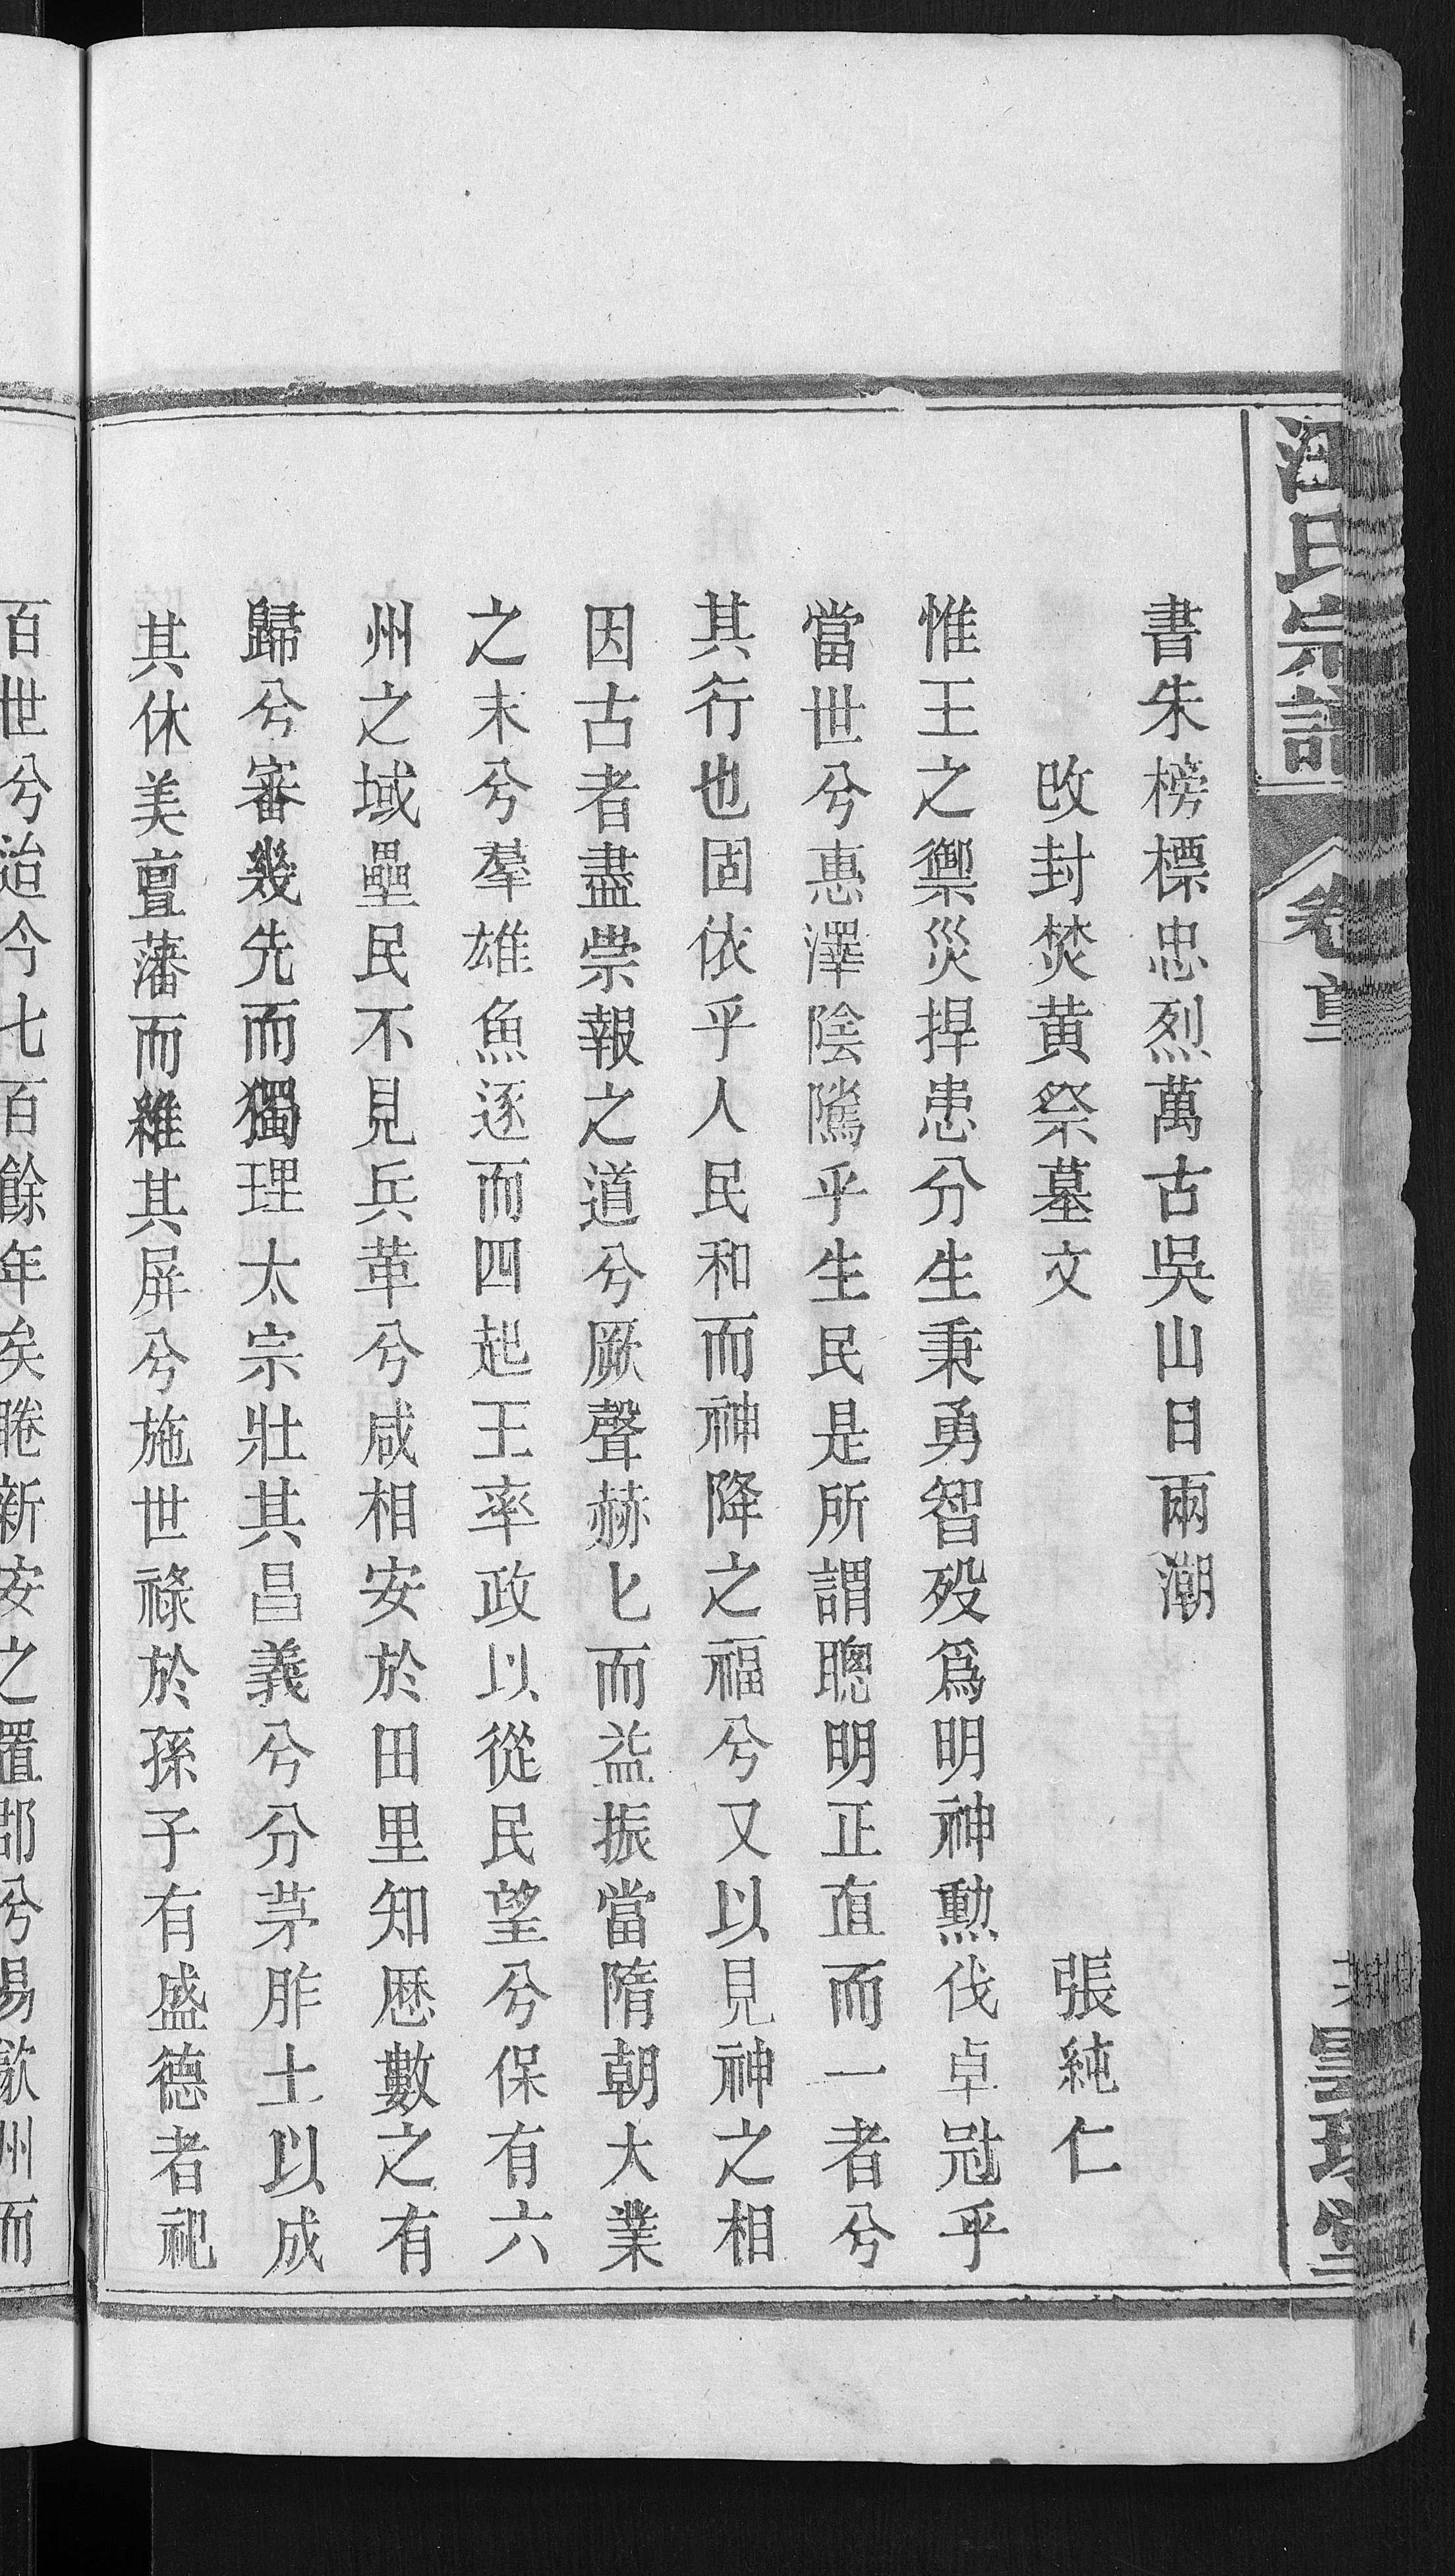 汪氏宗譜
卷首
書朱榜標忠烈萬古吳山日兩潮
改封焚黄祭墓文
張純仁
惟王之禦災捍患分生秉勇智殁爲明神勲伐卓冠乎
當世兮惠澤陰隲乎生民是所謂聰明正直而一者兮
其行也固依乎人民和而神降之福兮又以見神之相
因古者盡崇報之道兮厥聲赫匕而益振當隋朝大業
之末兮羣雄魚逐而四起王率政以從民望兮保有六
州之域壘民不見兵革兮咸相安於田里知厯數之有
歸兮審幾先而獨理太宗壯其昌義兮分茅胙土以成
其休美亶藩而維其屏兮施世祿於孫子有盛德者祀
百世兮迨今七百餘年矣睠新安之置郡兮易歙州而